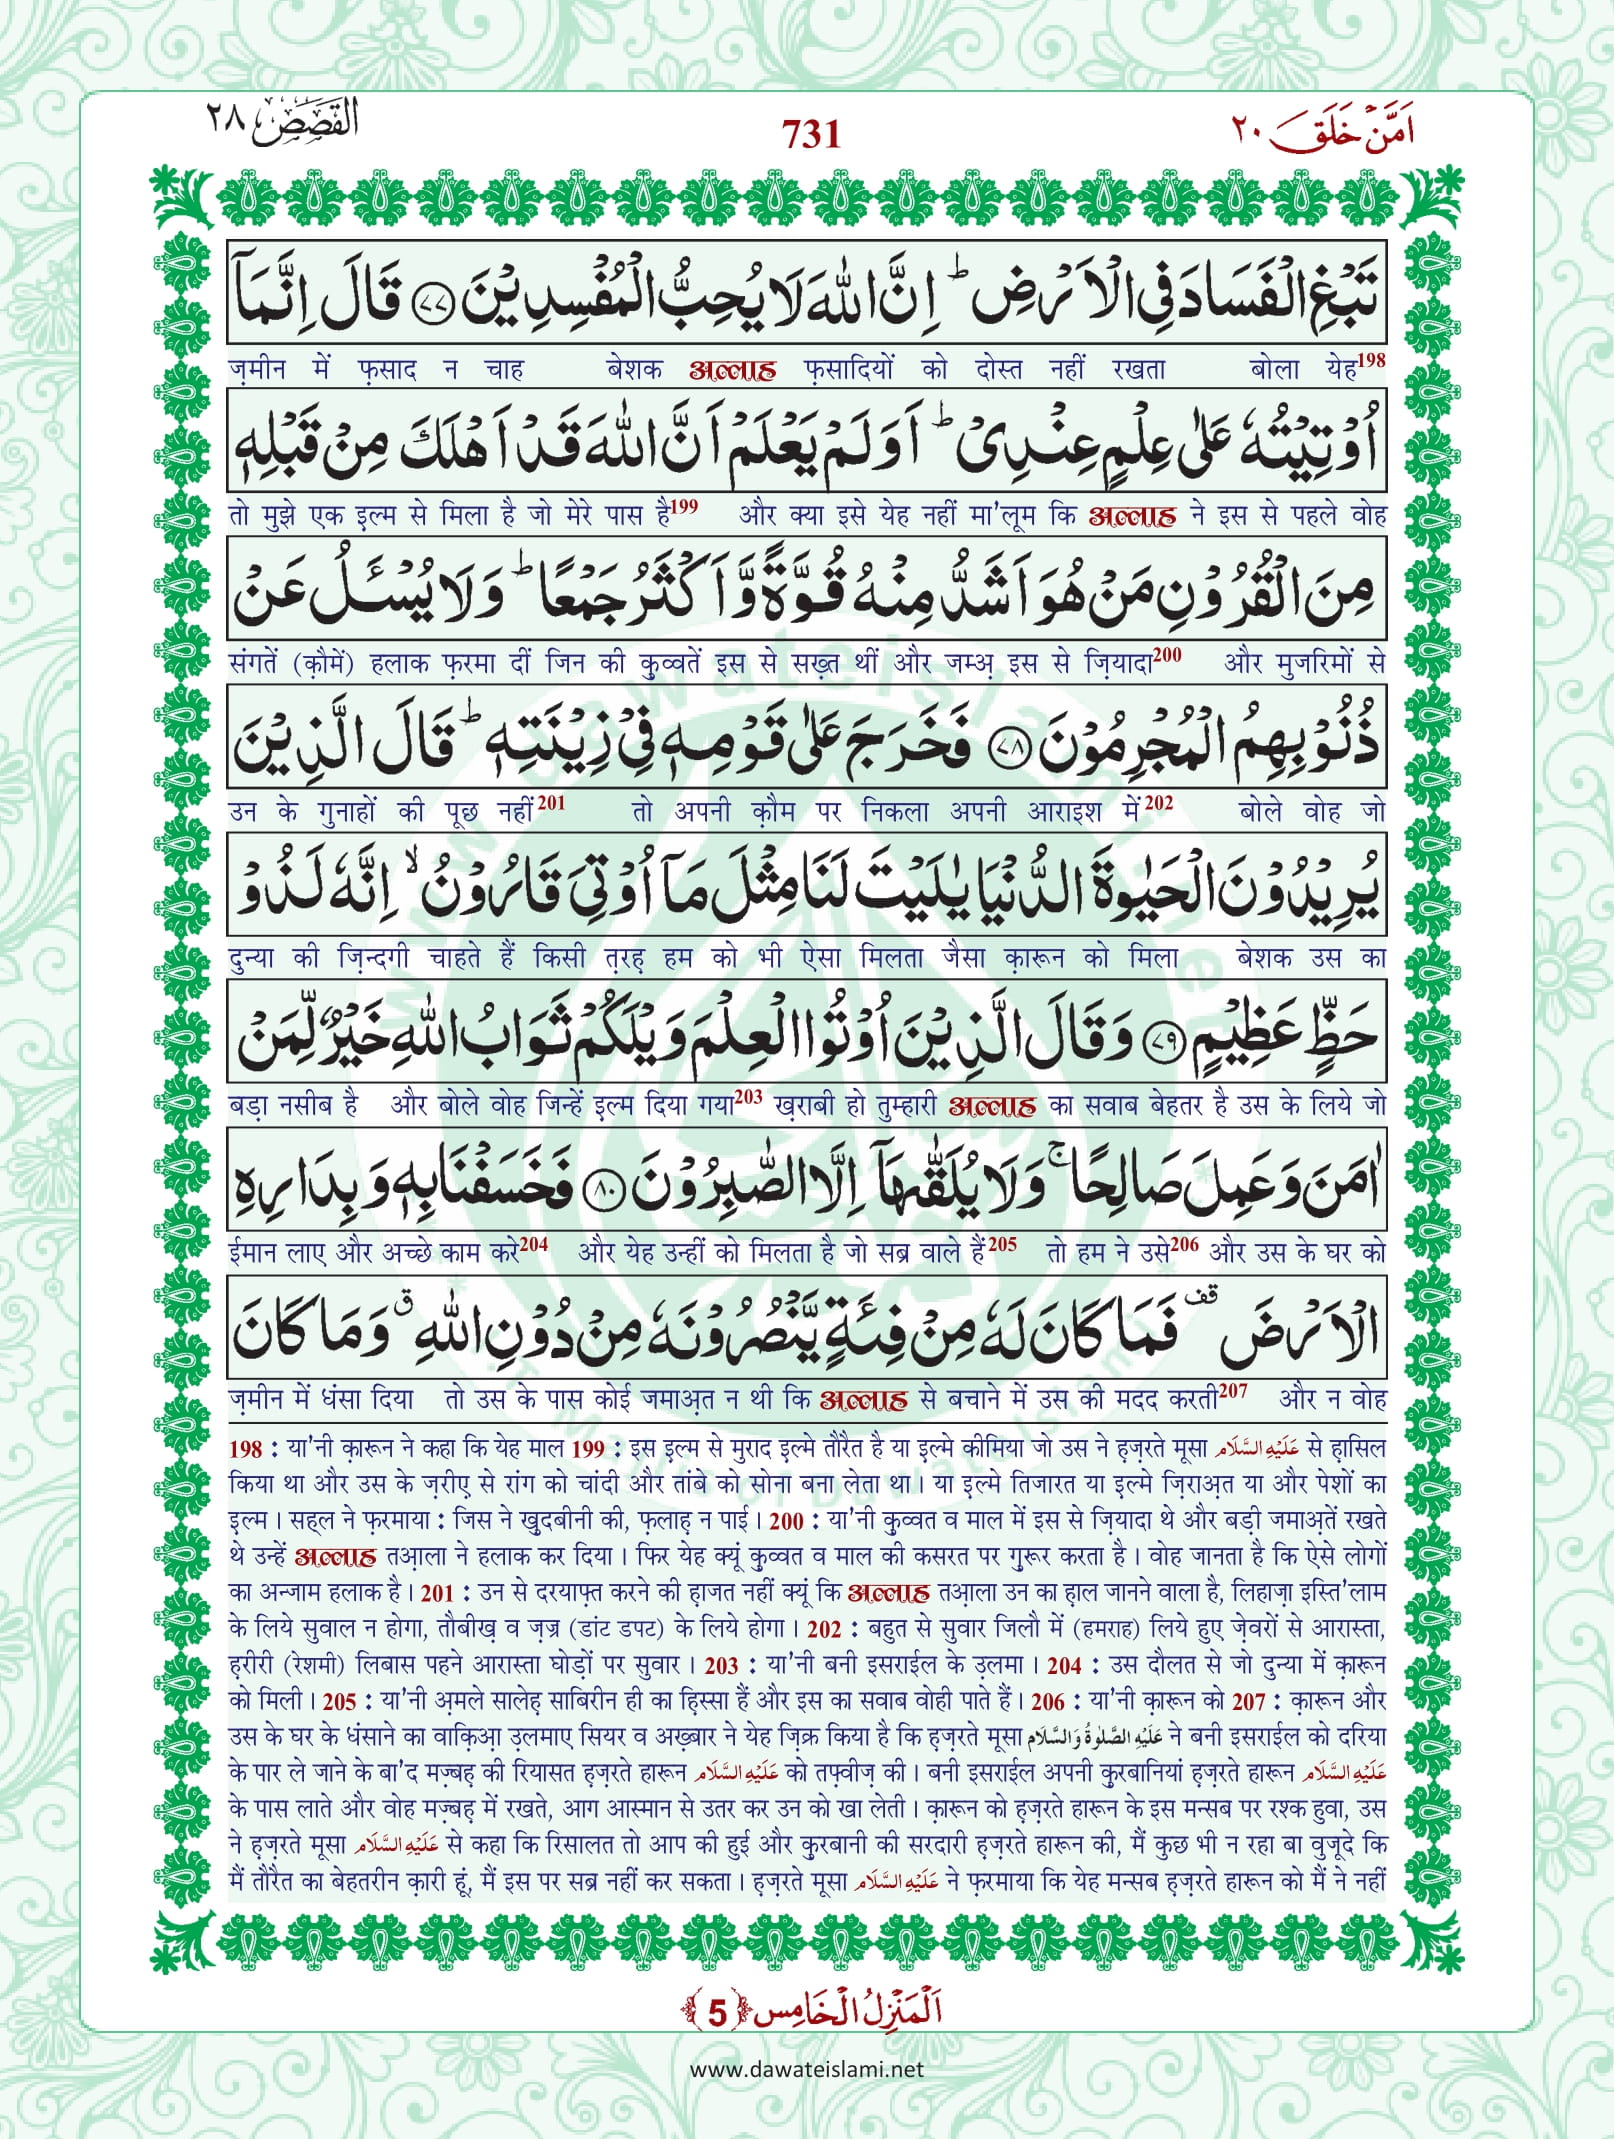 اَمَّنْ خَلَقَ ٢٠
731
القَصَص ٢٨
تَبْغِ الْفَسَادَ فِی الْاَرْضِ ؕ اِنَّ اللّٰهَ لَا یُحِبُّ الْمُفْسِدِیْنَ ﴿۷۷﴾ قَالَ اِنَّمَاۤ
ज़मीन में फ़साद न चाह बेशक अल्लाह फ़सादियों को दोस्त नहीं रखता बोला येह198
اُوْتِیْتُهٗ عَلٰی عِلْمٍ عِنْدِیْ ؕ اَوَ لَمْ یَعْلَمْ اَنَّ اللّٰهَ قَدْ اَهْلَكَ مِنْ قَبْلِهٖ
तो मुझे एक इल्म से मिला है जो मेरे पास है199 और क्या इसे येह नहीं मा'लूम कि अल्लाह ने इस से पहले वोह
مِنَ الْقُرُوْنِ مَنْ هُوَ اَشَدُّ مِنْهُ قُوَّةً وَّ اَكْثَرُ جَمْعًا ؕ وَ لَا یُسْـَٔلُ عَنْ
संगतें (क़ौमें) हलाक फ़रमा दीं जिन की कुव्वतें इस से सख़्त थीं और जम्अ़ इस से ज़ियादा200 और मुजरिमों से
ذُنُوْبِهِمُ الْمُجْرِمُوْنَ ﴿۷۸﴾ فَخَرَجَ عَلٰی قَوْمِهٖ فِیْ زِیْنَتِهٖ ؕ قَالَ الَّذِیْنَ
उन के गुनाहों की पूछ नहीं201 तो अपनी क़ौम पर निकला अपनी आराइश में202 बोले वोह जो
یُرِیْدُوْنَ الْحَیٰوةَ الدُّنْیَا یٰلَیْتَ لَنَا مِثْلَ مَاۤ اُوْتِیَ قَارُوْنُ ۙ اِنَّهٗ لَذُوْ
दुन्या की ज़िन्दगी चाहते हैं किसी त़रह हम को भी ऐसा मिलता जैसा क़ारून को मिला बेशक उस का
حَظٍّ عَظِیْمٍ ﴿۷۹﴾ وَ قَالَ الَّذِیْنَ اُوْتُوا الْعِلْمَ وَیْلَكُمْ ثَوَابُ اللّٰهِ خَیْرٌ لِّمَنْ
बड़ा नसीब है और बोले वोह जिन्हें इल्म दिया गया203 ख़राबी हो तुम्हारी अल्लाह का सवाब बेहतर है उस के लिये जो
اٰمَنَ وَ عَمِلَ صَالِحًا ۚ وَ لَا یُلَقّٰىهَاۤ اِلَّا الصّٰبِرُوْنَ ﴿۸۰﴾ فَخَسَفْنَا بِهٖ وَ بِدَارِهِ
ईमान लाए और अच्छे काम करे204 और येह उन्हीं को मिलता है जो सब्र वाले हैं205 तो हम ने उसे206 और उस के घर को
الْاَرْضَ قف فَمَا كَانَ لَهٗ مِنْ فِئَةٍ یَّنْصُرُوْنَهٗ مِنْ دُوْنِ اللّٰهِ ق وَ مَا كَانَ
ज़मीन में धंसा दिया तो उस के पास कोई जमाअ़त न थी कि अल्लाह से बचाने में उस की मदद करती207 और न वोह
198 : या'नी क़ारून ने कहा कि येह माल 199 : इस इल्म से मुराद इल्मे तौरैत है या इल्मे कीमिया जो उस ने ह़ज़रते मूसा عَلَیْهِ السَّلَام से ह़ासिल
किया था और उस के ज़रीए से रांग को चांदी और तांबे को सोना बना लेता था। या इल्मे तिजारत या इल्मे ज़िराअ़त या और पेशों का
इल्म। सह्ल ने फ़रमाया : जिस ने खुदबीनी की, फ़लाह़ न पाई। 200 : या'नी कुव्वत व माल में इस से ज़ियादा थे और बड़ी जमाअ़तें रखते
थे उन्हें अल्लाह तआ़ला ने हलाक कर दिया। फिर येह क्यूं कुव्वत व माल की कसरत पर गुरूर करता है। वोह जानता है कि ऐसे लोगों
का अन्जाम हलाक है। 201 : उन से दरयाफ़्त करने की ह़ाजत नहीं क्यूं कि अल्लाह तआ़ला उन का ह़ाल जानने वाला है, लिहाज़ा इस्ति'लाम
के लिये सुवाल न होगा, तौबीख़ व ज़ज्र (डांट डपट) के लिये होगा। 202 : बहुत से सुवार जिलौ में (हमराह) लिये हुए ज़ेवरों से आरास्ता,
ह़रीरी (रेशमी) लिबास पहने आरास्ता घोड़ों पर सुवार। 203 : या'नी बनी इसराईल के उ़लमा। 204 : उस दौलत से जो दुन्या में क़ारून
को मिली। 205 : या'नी अ़मले सालेह़ साबिरीन ही का ह़िस्सा हैं और इस का सवाब वोही पाते हैं। 206 : या'नी क़ारून को 207 : क़ारून और
उस के घर के धंसाने का वाक़िआ़ उ़लमाए सियर व अख़्बार ने येह ज़िक्र किया है कि ह़ज़रते मूसा عَلَیْهِ الصَّلٰوةُ وَالسَّلَام ने बनी इसराईल को दरिया
के पार ले जाने के बा'द मज़्बह़ की रियासत ह़ज़रते हारून عَلَیْهِ السَّلَام को तफ़्वीज़ की। बनी इसराईल अपनी कुरबानियां ह़ज़रते हारून عَلَیْهِ السَّلَام
के पास लाते और वोह मज़्बह़ में रखते, आग आस्मान से उतर कर उन को खा लेती। क़ारून को ह़ज़रते हारून के इस मन्सब पर रश्क हुवा, उस
ने ह़ज़रते मूसा عَلَیْهِ السَّلَام से कहा कि रिसालत तो आप की हुई और कुरबानी की सरदारी ह़ज़रते हारून की, मैं कुछ भी न रहा बा वुजूदे कि
मैं तौरैत का बेहतरीन क़ारी हूं, मैं इस पर सब्र नहीं कर सकता। ह़ज़रते मूसा عَلَیْهِ السَّلَام ने फ़रमाया कि येह मन्सब ह़ज़रते हारून को मैं ने नहीं
اَلْمَنْزِلُ الْخَامِس ﴿5﴾
www.dawateislami.net